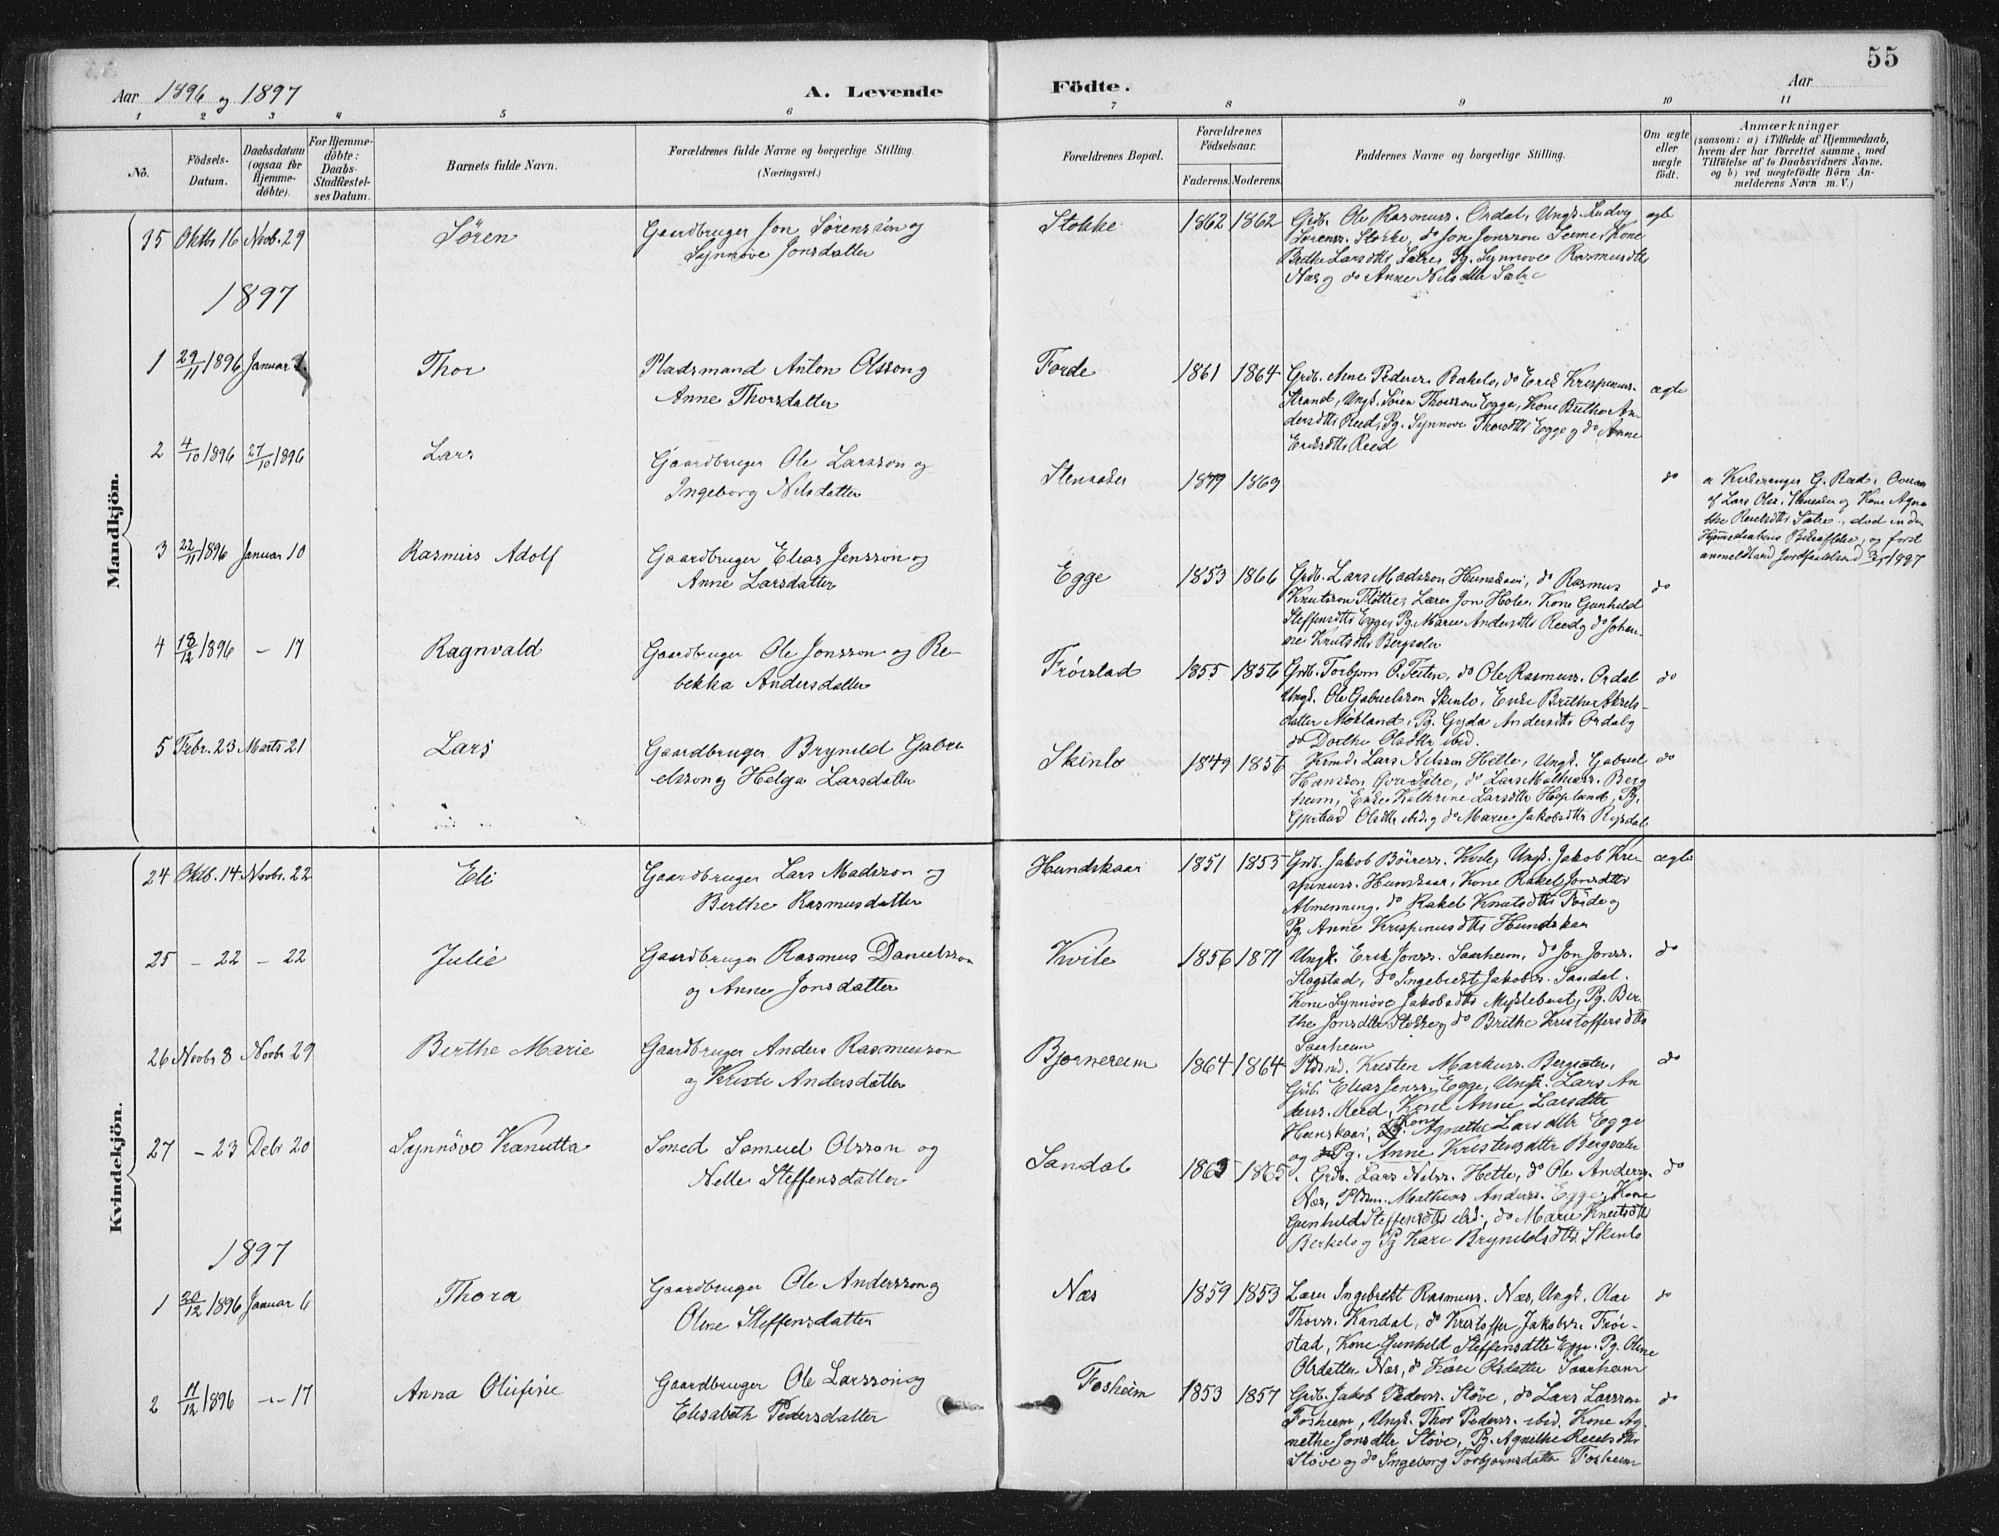 55
Aar 1896 og 1897
A. Levende Födte.
Aar
1 2 3 4 5 6 7 8 9 10 11
No.
Födsels-Datum.
Daabsdatum (ogsaa for Hjemme-döbte).
For Hjemme-döbte: Daabs-Stadfæstel-ses Datum.
Barnets fulde Navn.
Forældrenes fulde Navne og borgerlige Stilling.
(Næringsvei.)
Forældrenes Bopæl.
Forældrenes Födselsaar.
Faderens. Moderens.
Faddernes Navne og borgerlige Stilling.
Om ægte eller uægte födt.
Anmærkninger
(saasom: a) i Tilfælde af Hjemmedaab,
hvem der har forrettet samme, med
Tilföielse af to Daabsvidners Navne,
og b) ved uægtefödte Börn An-
melderens Navn m. V.)
Mandkjön.
35 Oktbr 16 Novb. 29 Søren
Gaardbruger Jon Sørensson og
Synnøve Jonsdatter
Stokke 1862 1862
Grdb. Ole Rasmuss. Ordal, Ungk. Ludvig
Sørenss. Stokke, do Jon Jonsson Seime, Kone
Brithe Larsdtr Sætre, Pg. Synnøve Rasmusdtr
Næs og do Anne Nilsdtr Sætre
ægte
1897
1 29/11 1896 Januar 1. Thor
Pladsmand Anton Olsson og
Anne Thorsdatter
Førde 1861 1864
Grdb. Arne Peders. Berkelo, do Erik Krispinuss.
Strand, Ungk. Søren Thorsson Egge, Kone Brithe An-
dersdtr Reed, Pg. Synnøve Thorsdtr Egge og do Anne
Eriksdtr Reed
ægte
2 4/10 1896 27/10 1896 Lars
Gaardbruger Ole Larsson og
Ingeborg Nilsdatter
Stensæter 1869
do
a Kirkesanger G. Reed,
af Lars Ols. Stensæter og Kone Agne-
the Sætre, død
3 22/11 1896 Januar 10 Rasmus Adolf
Gaardbruger Elias Jensson og
Anne Larsdatter
Egge 1853 1866
Grdb. Lars Madsson Hundskaar, do Rasmus
Knutsson Fløttre, Lærer Jon Hole, Kone Gunhild
Steffensdtr Egge, Pg. Marie Andersdtr Reed og do Johan-
ne Knutsdtr Bergsæter
do
4 18/12 1896 - 17 Ragnvald
Gaardbruger Ole Jonsson og Re-
bekka Andersdatter
Frøistad 1855 1856
Grdb. Torbjørn P. Teiten, do Ole Rasmuss. Ordal
Ungk. Ole Gabrielsson Skinlo, Enke Brithe Aksels-
datter Mørkland, Pg. Gyda Andersdtr Ordal og
do Dorthe Olsdtr ibid.
do
5 Febr. 23 Marts 21 Lars
Gaardbruger Brynild Gabri-
elsson og Helga Larsdatter
Skinlo 1849 1856
Lars Nilsson Hette, Ungk. Gabriel
Hansson Øvre Sætre, do Lars Mathiass. Berg
heim, Enke Kathrine Larsdtr Hopland, Pg.
Gjertrud Olsdtr ibid og do Marie Jakobsdtr Rygdal
do
Kvindekjön.
24 Oktb. 14 Novbr. 22 Eli
Gaardbruger Lars Madsson og
Berthe Rasmusdatter
Hundskaar 1851 1853
Grdb. Jakob Børress. Kvile, Ungk. Jakob Kri-
spinuss. Hunskaar, Kone Rakel Jonsdtr
Almenning, do Rakel Knutsdtr Førde og
Pg. Anne Krispinusdtr Hundskaar
ægte
25 - 22 - 22 Julie
Gaardbruger Rasmus Danielsson
og Anne Jonsdatter
Kvile 1856 1871
Ungk. Erik Jonss. Saarheim, do Jon Jonss.
Slagstad, do Ingebrekt Jakobss. Sandal.
Kone Synnøve Jakobsdtr Myklebust, Pg. Ber-
the Jonsdtr Stokke og do Brithe Kristoffersdtr
Saarheim
do
26 Novbr 8 Novbr 29 Berthe Marie
Gaardbruger Anders Rasmusson
og Kristi Andersdatter
Bjørnereim 1864 1864
Pldsmd. Kristen Markuss. Bergsæter,
Grdb. Elias Jenss. Egge, Ungk. Lars An
derss. Reed, Kone Anne Larsdtr
Hunskaar, Kone Agnethe Larsdtr Egge
og Pg. Anne Kristensdtr Bergsæter
do
27 - 23 Debr 20 Synnøve Kanutta
Smed Samuel Olsson og
Nelle Steffensdatter
Sandal 1865 1865
Grdb. Lars Nilss. Hette, do Ole Anderss.
Næs, Pldsm. Mathias Anderss. Egge, Kone
Gunhild Steffensdtr ibid, do Marie Knutsdtr
Berkelo og Pg Kari Brynildsdtr Skinlo
do
1897
1 30/12 1896 Januar 6 Thora
Gaardbruger Ole Andersson og
Oline Steffensdatter
Næs 1859 1853
Lærer Ingebrekt Rasmuss. Næs, Ungk. Ole
Thorss. Kandal, do Kristoffer Jakobss. Frøi-
stad, Kone Gunhild Steffensdtr Egge, Pg. Oline
Olsdatter Næs, do Kari Olsdatter Saarheim
do
2 17/12 1896 - 17 Anna Olufine
Gaardbruger Ole Larsson og
Elisabeth Pedersdatter
Fosheim 1853 1857
Grdb. Jakob Pederss. Støve, do Lars Larsson
Fosheim, Ungk. Thor Pederss. ibid. Kone Ag-
nethe Jonsdtr Støve, Pg. Agnethe Reielsdtr
Støve og do Ingeborg Torbjørnsdatter Fosheim
do